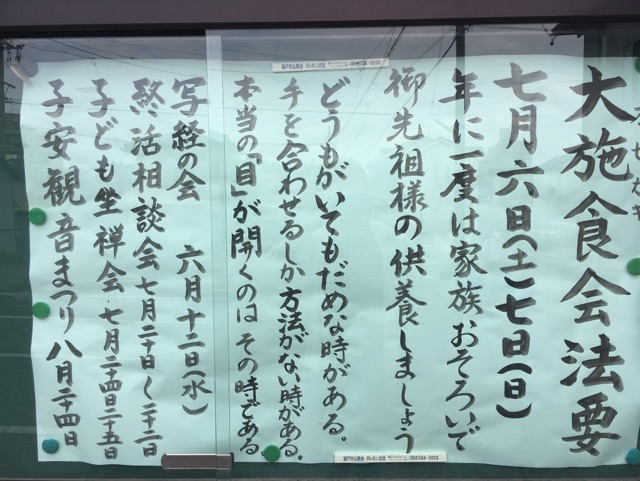 大施食会法要
七月六日(土)七日(日)
年に一度は家族おそろいで
御先祖様の供養しましょう
どうもがいてもだめな時がある。
手を合わせるしか方法がない時がある。
本当の「目」が開くのは その時である
写経の会 六月十二日(水)
終活相談会 七月二十日〜二十二日
子ども坐禅会・七月二十四日二十五日
子安観音まつり 八月二十四日